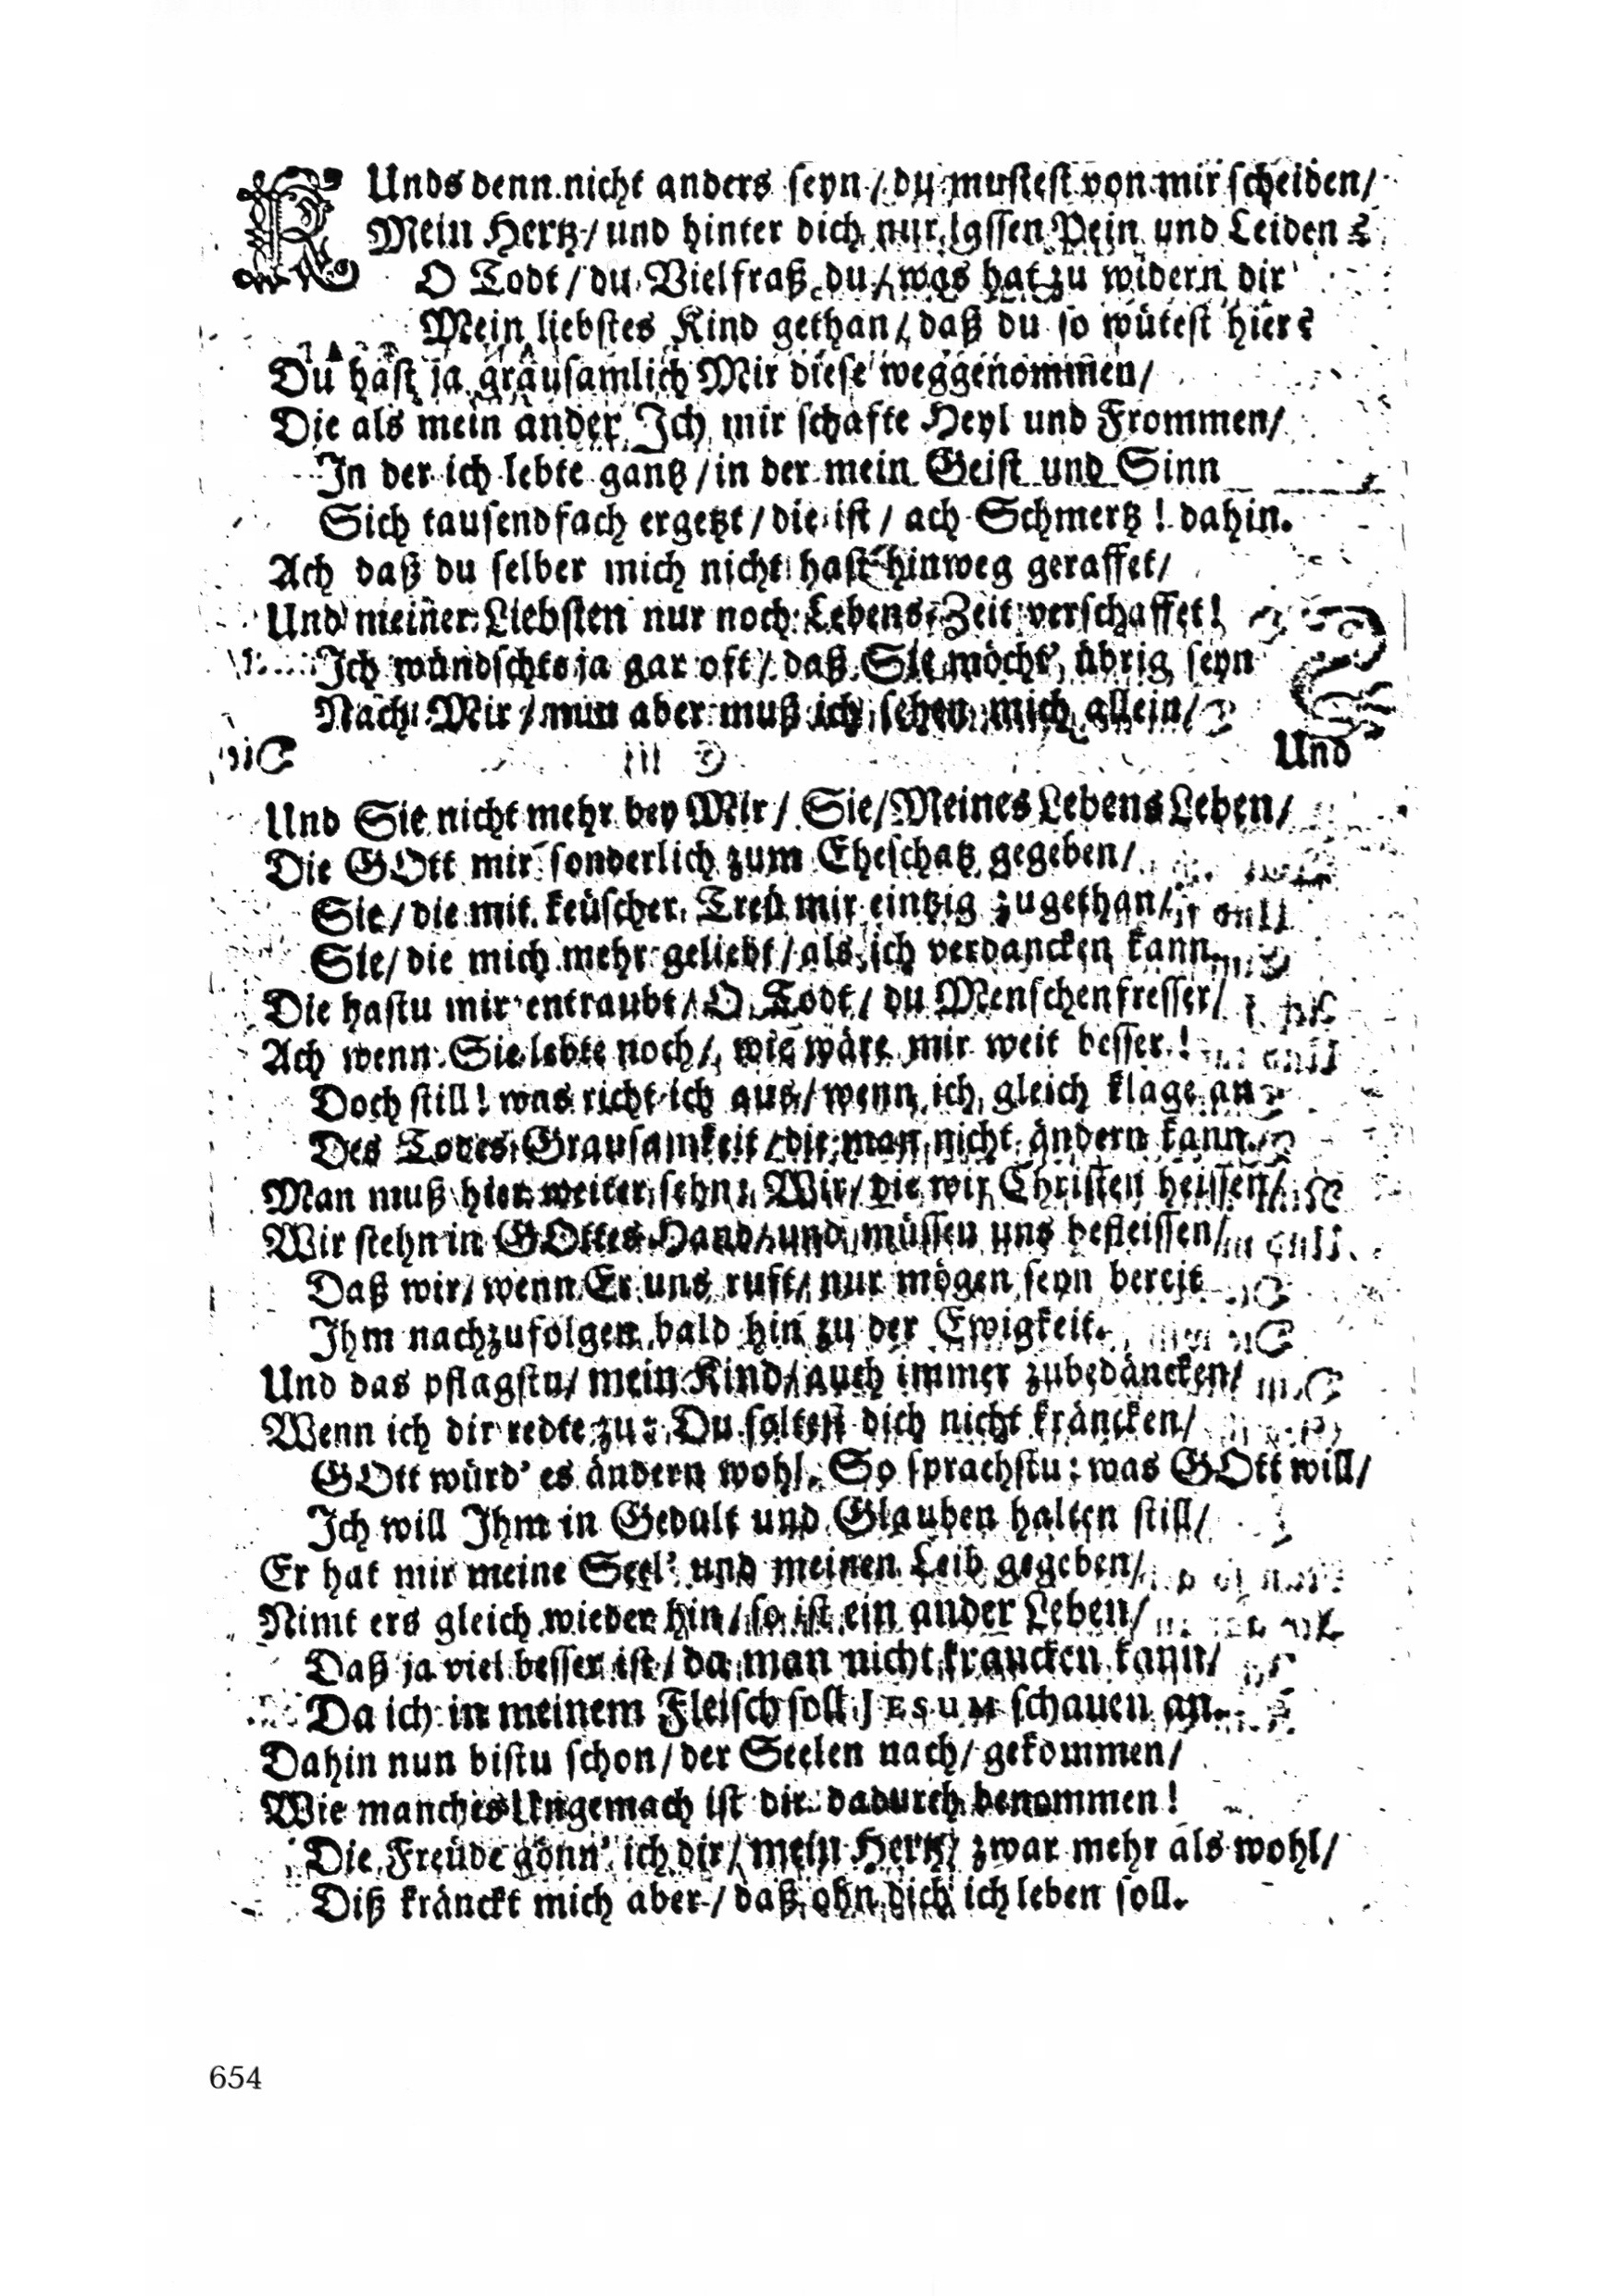 KUnds denn nicht anders seyn / du mustest von mir scheiden /
Mein Hertz / und hinter dich nur lassen Pein und Leiden?
O Todt / du Vielfraß du / was hat zu widern dir
Mein liebstes Kind gethan / daß du so wütest hier?
Du hast ja grausamlich Mir diese weggenommen /
Die als mein ander Ich mir schafte Heyl und Frommen /
In der ich lebte gantz / in der mein Geist und Sinn
Sich tausendfach ergetzt / die ist / ach Schmertz! dahin.
Ach daß du selber mich nicht hast hinweg geraffet /
Und meiner Liebsten nur noch Lebens-Zeit verschaffet!
Ich wündschte ja gar oft / daß Sie möcht' übrig seyn
Nach Mir / nun aber muß ich sehen mich allein /
Und
Und Sie nicht mehr bey Mir / Sie / Meines Lebens Leben /
Die GOtt mir sonderlich zum Eheschatz gegeben /
Sie / die mit keüscher Treü mir eintzig zugethan /
Sie / die mich mehr geliebt / als ich verdancken kann.
Die hastu mir entraubt / O Todt / du Menschenfresser /
Ach wenn Sie lebte noch / wie wäre mir weit besser!
Doch still! was richt ich aus / wenn ich gleich klage an
Des Todes Grausamkeit / die man nicht ändern kann.
Man muß hier weiter sehn: Wir / die wir Christen heissen /
Wir stehn in GOttes Hand / und müssen uns befleissen /
Daß wir / wenn Er uns ruft / nur mögen seyn bereit
Ihm nachzufolgen bald hin zu der Ewigkeit.
Und das pflagstu / mein Kind / auch immer zubedäncken /
Wenn ich dir redte zu: Du soltest dich nicht kräncken /
GOtt würd' es ändern wohl. So sprachstu: was GOtt will /
Ich will Ihm in Gedult und Glauben halten still /
Er hat mir meine Seel' und meinen Leib gegeben /
Nimt ers gleich wieder hin / so ist ein ander Leben /
Daß ja viel besser ist / da man nicht krancken kann /
Da ich in meinem Fleisch soll JESUM schauen an.
Dahin nun bistu schon / der Seelen nach / gekommen /
Wie manches Ungemach ist dir dadurch benommen!
Die Freüde gönn' ich dir / mein Hertz / zwar mehr als wohl /
Diß kränckt mich aber / daß ohn dich ich leben soll.
654